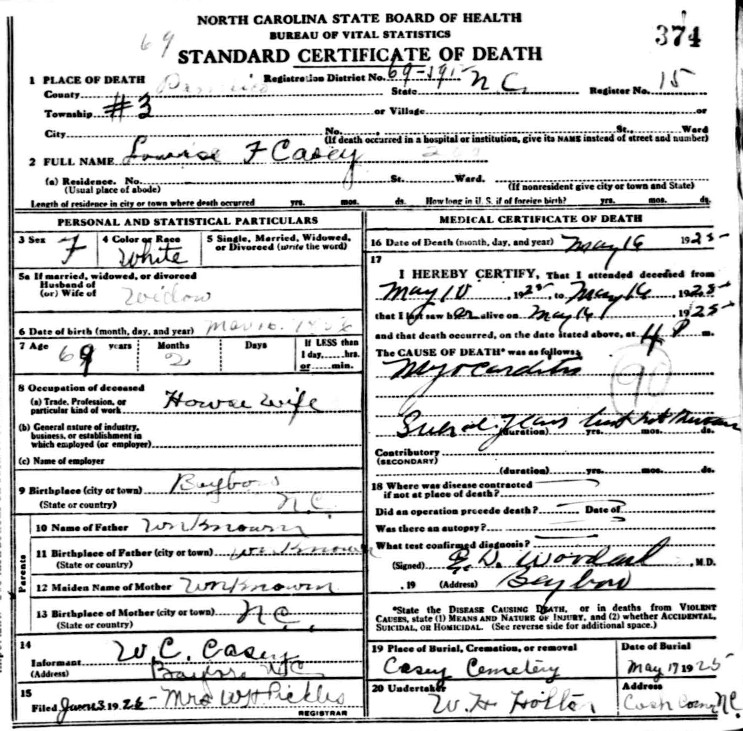 NORTH CAROLINA STATE BOARD OF HEALTH
BUREAU OF VITAL STATISTICS
69
STANDARD CERTIFICATE OF DEATH
374
1 PLACE OF DEATH Registration District No. 69-195 Register No. 15
County Pamlico State N C
Township #3 or Village or
City No. , St., Ward
(If death occurred in a hospital or institution, give its NAME instead of street and number)
2 FULL NAME Louise F Casey
(a) Residence. No. St. Ward.
(Usual place of abode) (If nonresident give city or town and State)
Length of residence in city or town where death occurred yrs. mos. ds. How long in U. S. if of foreign birth? yrs. mos. ds.
PERSONAL AND STATISTICAL PARTICULARS
3 Sex F
4 Color or Race White
5 Single, Married, Widowed, or Divorced (write the word)
5a If married, widowed, or divorced
Husband of
(or) Wife of Widow
6 Date of birth (month, day, and year) Mar 10.
7 Age 69 years Months 2 Days If LESS than
1 day, hrs.
or min.
8 Occupation of deceased
(a) Trade, Profession, or
particular kind of work House Wife
(b) General nature of industry,
business, or establishment in
which employed (or employer)
(c) Name of employer
9 Birthplace (city or town) Bayboro
(State or country) N.C.
Parents
10 Name of Father Unknown
11 Birthplace of Father (city or town) Unknown
(State or country)
12 Maiden Name of Mother Unknown
13 Birthplace of Mother (city or town)
(State or country) N.C.
14
Informant W. C. Casey
(Address) Bayboro N.C.
15
Filed 3 19 Mrs W H Pickles
REGISTRAR
MEDICAL CERTIFICATE OF DEATH
16 Date of Death (month, day, and year) May 16 1925
17
I HEREBY CERTIFY, That I attended deceased from
May 10 1925 to May 16 1925
that I last saw her alive on May 16 1925
and that death occurred, on the date stated above, at 4 P m.
The CAUSE OF DEATH* was as follows:
Myocarditis
90
Several years
(duration) yrs. mos. ds.
Contributory
(SECONDARY)
(duration) yrs. mos. ds.
18 Where was disease contracted
if not at place of death?
Did an operation precede death? Date of
Was there an autopsy?
What test confirmed diagnosis?
(Signed) D. Woodard , M.D.
, 19 (Address) Bayboro
*State the DISEASE CAUSING DEATH, or in deaths from VIOLENT
CAUSES, state (1) MEANS AND NATURE OF INJURY, and (2) whether ACCIDENTAL,
SUICIDAL, or HOMICIDAL. (See reverse side for additional space.)
19 Place of Burial, Cremation, or removal Date of Burial
Casey Cemetery May 17 1925
20 Undertaker Address
W. H. Holton Cash Corner N.C.